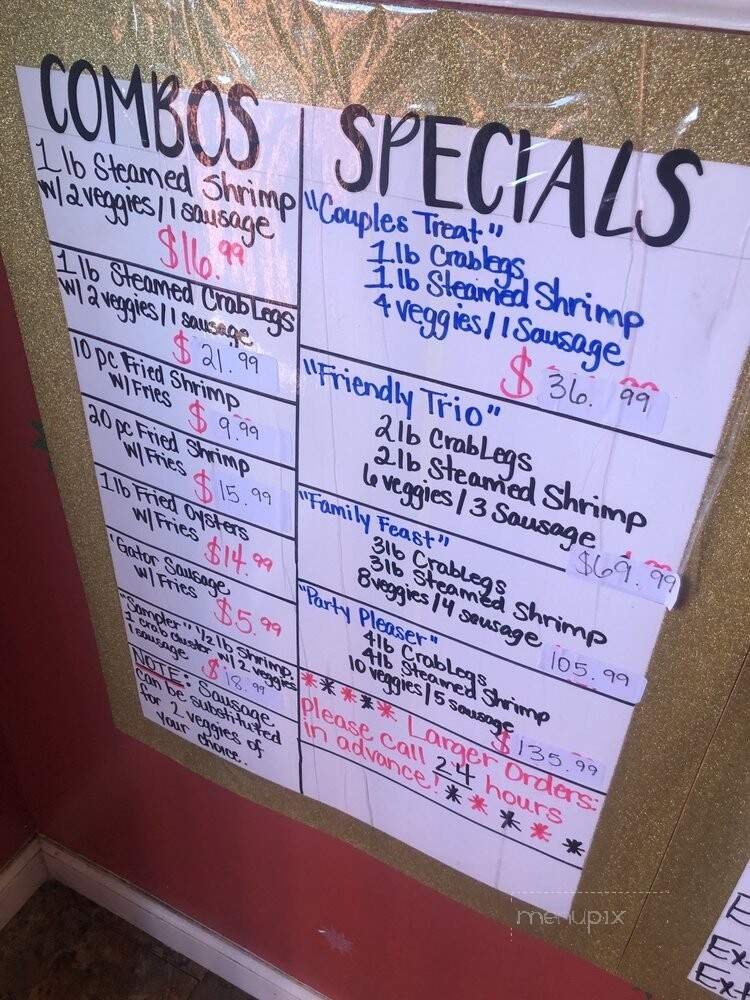 COMBOS
1 lb Steamed Shrimp
w/ 2 veggies / 1 sausage
$16.99
1 lb Steamed CrabLegs
w/ 2 veggies / 1 sausage
$21.99
10 pc Fried Shrimp
w/ Fries $9.99
20 pc Fried Shrimp
w/ Fries $15.99
1 lb Fried Oysters
w/ Fries $14.99
"Gator Sausage
w/ Fries $5.99
"Sampler" 1/2 lb Shrimp,
1 crab cluster w/ 2 veggies
1 sausage $18.99
NOTE: Sausage
can be substituted
for 2 veggies of
your choice.
SPECIALS
"Couples Treat"
1 lb Crablegs
1 lb Steamed Shrimp
4 veggies / 1 Sausage
$36.99
"Friendly Trio"
2 lb CrabLegs
2 lb Steamed Shrimp
6 veggies / 3 Sausage
$69.99
"Family Feast"
3 lb CrabLegs
3 lb Steamed Shrimp
8 veggies / 4 sausage
105.99
"Party Pleaser"
4 lb CrabLegs
4 lb Steamed Shrimp
10 veggies / 5 sausage
$135.99
***** Larger Orders:
Please call 24 hours
in advance! *****
menupix
Ex
Ext